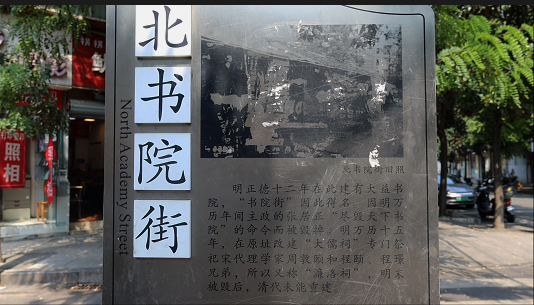 北书院街
North Academy Street
北书院街旧照
明正德十二年在此建有大益书
院，“书院街”因此得名。因明万
历年间主政的张居正“尽毁天下书
院”的命令而被毁掉。明万历十五
年，在原址改建“大儒祠”专门祭
祀宋代理学家周敦颐和程颐、程璟
兄弟，所以又称“濂洛祠”，明末
被毁后，清代未能重建。
照相